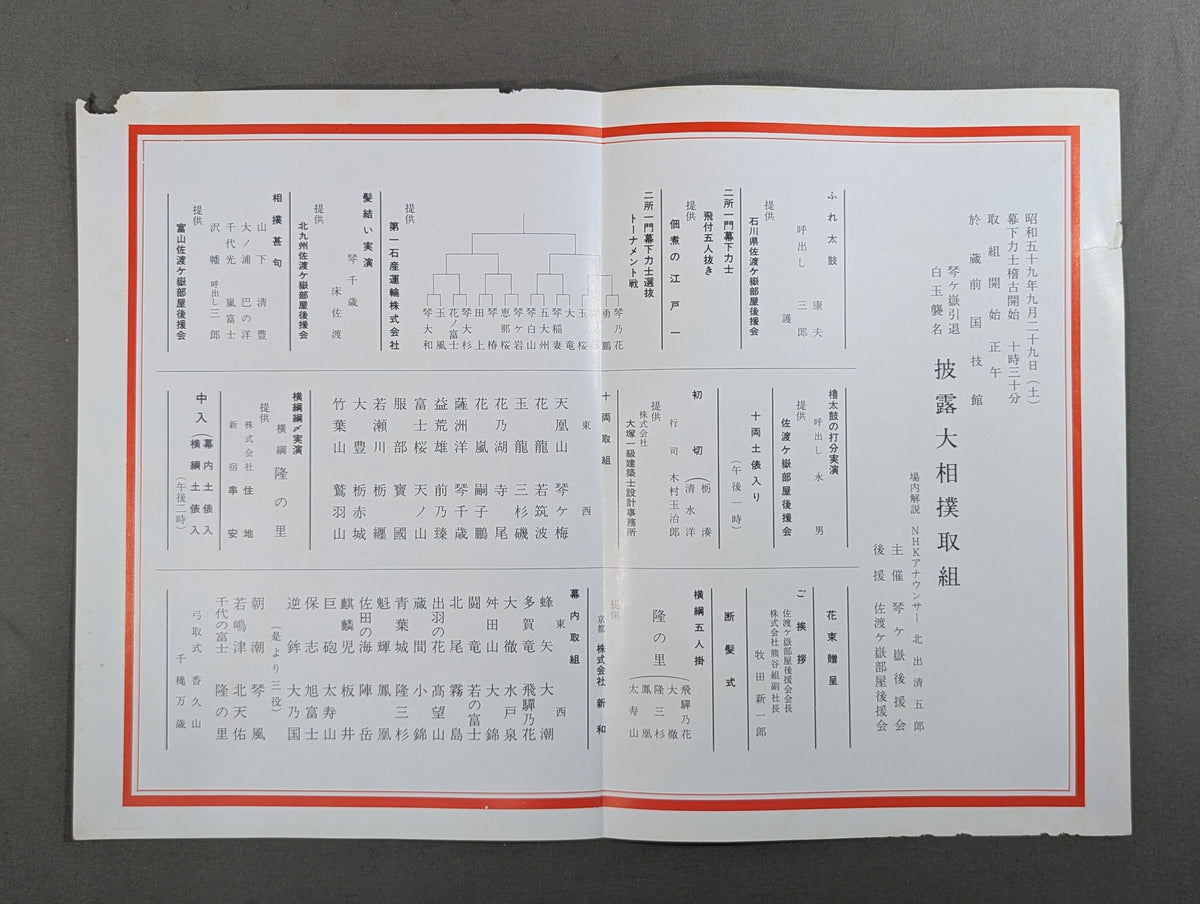 昭和五十九年九月二十九日（土）
幕下力士稽古開始　十時三十分
取組開始　正午
於　蔵前国技館
琴ケ嶽引退
白玉襲名
披露大相撲取組
場内解説　NHKアナウンサー　北出清五郎
主催　琴ケ嶽後援会
後援　佐渡ケ嶽部屋後援会
ふれ太鼓
呼出し　康夫
三郎
護
石川県佐渡ケ嶽部屋後援会
二所一門幕下力士
飛付五人抜き
提供
佃煮の江戸一
二所一門幕下力士選抜
トーナメント戦
琴乃花
勇鵬
桜
玉
大竜
琴稲妻
五大州
琴白山
琴ケ岩
恵那桜
琴椿
田上
琴大杉
花ノ富士
玉風
琴大和
提供
第一石産運輸株式会社
髪結い実演
琴千歳
床佐渡
提供
北九州佐渡ケ嶽部屋後援会
相撲甚句
山下　清豊
大ノ浦　巴の洋
千代光　嵐富士
沢幡　呼出し三郎
提供
富山佐渡ケ嶽部屋後援会
櫓太鼓の打分実演
呼出し　永男
提供
佐渡ケ嶽部屋後援会
十両土俵入り
（午後一時）
初切（栃湊
清水洋
行司　木村玉治郎
提供
株式会社
大塚一級建築士設計事務所
十両取組
東　西
天凰山　琴ケ梅
花龍　若筑波
玉龍　三杉磯
花乃湖　寺尾
花嵐　嗣子鵬
薩洲洋　琴千歳
益荒雄　前乃臻
富士桜　天ノ山
服部　寶國
若瀬川　栃纒
大豊　栃赤城
竹葉山　鷲羽山
横綱綱〆実演
横綱　隆の里
提供
株式会社　住地
新宿　串安
中入（幕内土俵入
横綱土俵入
（午後二時）
花束贈呈
ご挨拶
佐渡ケ嶽部屋後援会会長
株式会社熊谷組副社長
牧田新一郎
断髪式
横綱五人掛
隆の里（飛騨乃花
大徹
隆三杉
鳳凰
太寿山
提供
京都　株式会社　新和
幕内取組
東　西
蜂矢　大潮
多賀竜　飛騨乃花
大徹　水戸泉
舛田山　大錦
闘竜　若の富士
北尾　霧島
出羽の花　高望山
蔵間　小錦
青葉城　隆三杉
魁輝　鳳凰
佐田の海　陣岳
麒麟児　板井
巨砲　太寿山
保志　旭富士
逆鉾　大乃国
（是より三役）
朝潮　琴風
若嶋津　北天佑
千代の富士　隆の里
弓取式　香久山
千穐万歳